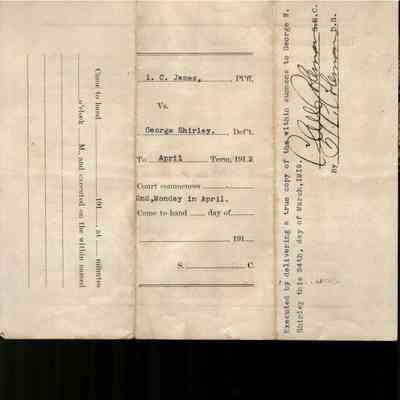 Came to hand 191 , at minutes
o'clock M., and executed on the within named
I. C. James, Pl'ff,
Vs.
George Shirley, Def't.
To April Term, 1912
Court commences
2nd, Monday in April.
Came to hand day of
191
S. C.
Executed by delivering a true copy of the within summons to George W.
Shirley this 24th, day of March, 1912.
S.M.C.
By D.S.